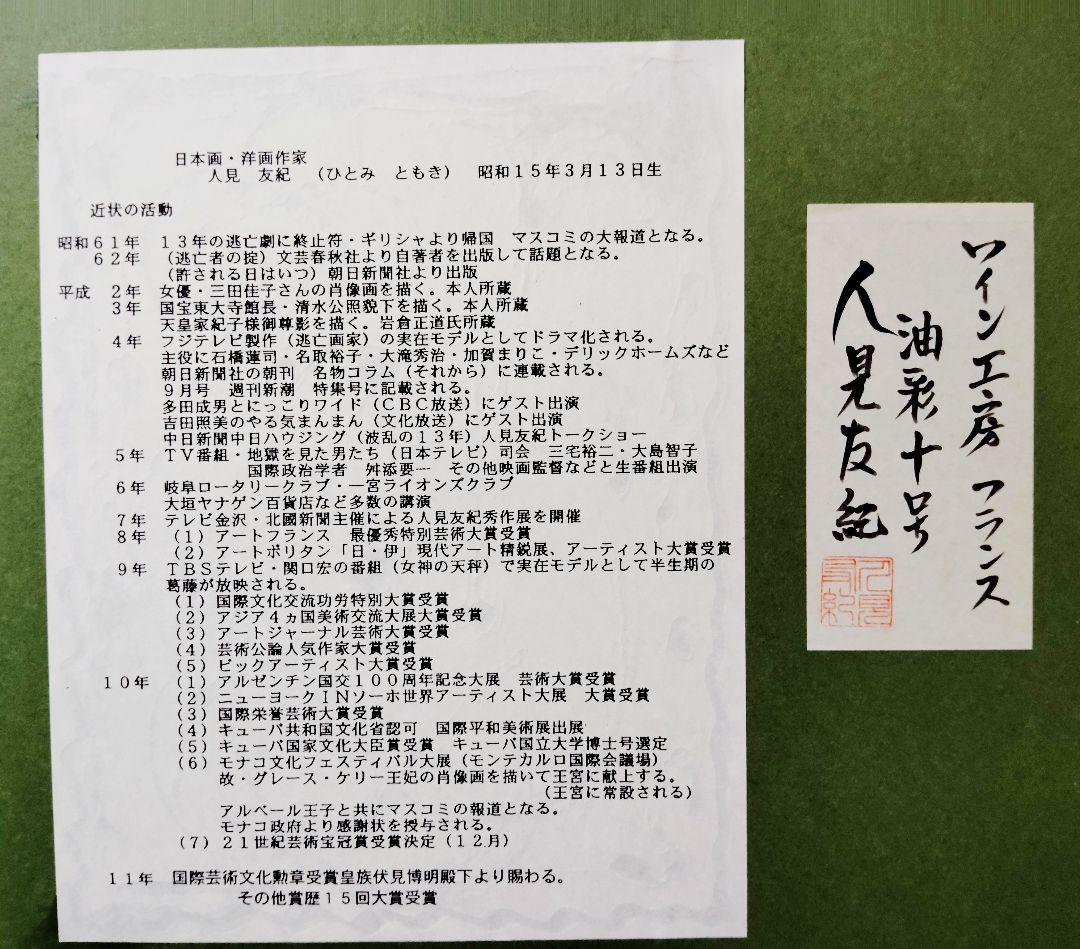 日本画・洋画作家
人見　友紀　（ひとみ　ともき）　昭和１５年３月１３日生
近状の活動
昭和６１年　１３年の逃亡劇に終止符・ギリシャより帰国　マスコミの大報道となる。
６２年　（逃亡者の掟）文芸春秋社より自著者を出版して話題となる。
（許される日はいつ）朝日新聞社より出版
平成　２年　女優・三田佳子さんの肖像画を描く。本人所蔵
３年　国宝東大寺館長・清水公照猊下を描く。本人所蔵
天皇家紀子様御尊影を描く。岩倉正道氏所蔵
４年　フジテレビ製作（逃亡画家）の実在モデルとしてドラマ化される。
主役に石橋蓮司・名取裕子・大滝秀治・加賀まりこ・デリックホームズなど
朝日新聞社の朝刊　名物コラム（それから）に連載される。
９月号　週刊新潮　特集号に記載される。
多田成男とにっこりワイド（ＣＢＣ放送）にゲスト出演
吉田照美のやる気まんまん（文化放送）にゲスト出演
中日新聞中日ハウジング（波乱の１３年）人見友紀トークショー
５年　ＴＶ番組・地獄を見た男たち（日本テレビ）司会　三宅裕二・大島智子
国際政治学者　舛添要一　その他映画監督などと生番組出演
６年　岐阜ロータリークラブ・一宮ライオンズクラブ
大垣ヤナゲン百貨店など多数の講演
７年　テレビ金沢・北國新聞主催による人見友紀秀作展を開催
８年　（１）アートフランス　最優秀特別芸術大賞受賞
（２）アートポリタン「日・伊」現代アート精鋭展、アーティスト大賞受賞
９年　ＴＢＳテレビ・関口宏の番組（女神の天秤）で実在モデルとして半生期の
葛藤が放映される。
（１）国際文化交流功労特別大賞受賞
（２）アジア４ヵ国美術交流大展大賞受賞
（３）アートジャーナル芸術大賞受賞
（４）芸術公論人気作家大賞受賞
（５）ビックアーティスト大賞受賞
１０年　（１）アルゼンチン国交１００周年記念大展　芸術大賞受賞
（２）ニューヨークＩＮソーホ世界アーティスト大展　大賞受賞
（３）国際栄誉芸術大賞受賞
（４）キューバ共和国文化省認可　国際平和美術展出展
（５）キューバ国家文化大臣賞受賞　キューバ国立大学博士号選定
（６）モナコ文化フェスティバル大展（モンテカルロ国際会議場）
故・グレース・ケリー王妃の肖像画を描いて王宮に献上する。
（王宮に常設される）
アルベール王子と共にマスコミの報道となる。
モナコ政府より感謝状を授与される。
（７）２１世紀芸術宝冠賞受賞決定（１２月）
１１年　国際芸術文化勲章受賞皇族伏見博明殿下より賜わる。
その他賞歴１５回大賞受賞
ワイン工房　フランス
油彩十号
人見友紀
人見
友紀